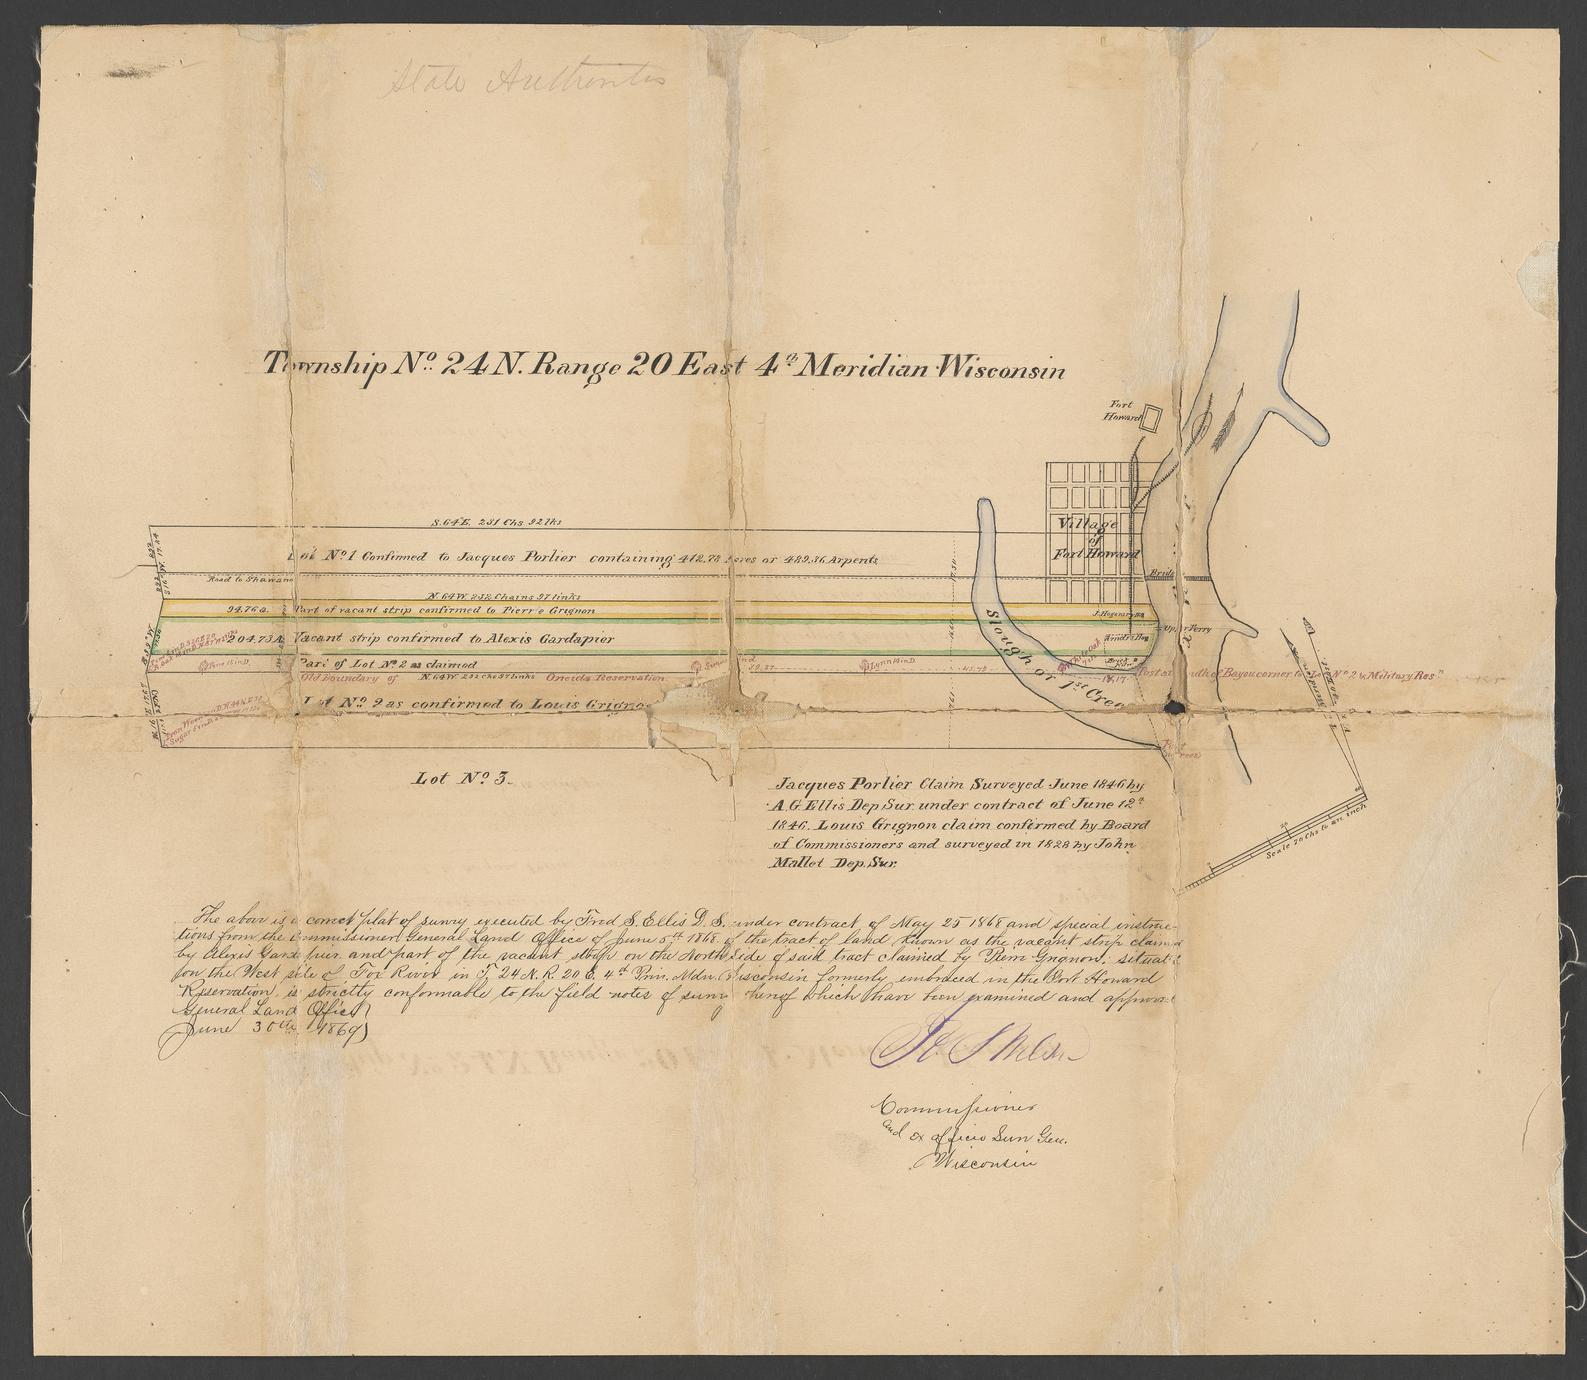 State Authorities
Township No. 24 N. Range 20 East 4th Meridian Wisconsin
Fort
Howard
Village
of
Fort Howard
S. 64 E. 231 Chs 92 lks
Lot No 1 Confirmed to Jacques Porlier containing 412.78 Acres or 489.36 Arpents
Road to Shawano
Bridge
N. 64 W. 232 Chains 97 links
94.76 a. Part of vacant strip confirmed to Pierre Grignon
204.73 A Vacant strip confirmed to Alexis Gardapier
Upper Ferry
Part of Lot No 2 as claimed
Old Boundary of N. 64 W. 232 Chs 97 links Oneida Reservation
Lynn 16 in D.
Post at mouth of Bayou corner to No 2 & Military Res.
Lot No 2 as confirmed to Louis Grigno
Slough or 1st Cree
Lot No 3.
Scale 20 Chs to an inch
Jacques Porlier Claim Surveyed June 1846 by
A. G. Ellis Dep. Sur. under contract of June 12th
1846. Louis Grignon claim confirmed by Board
of Commissioners and surveyed in 1828 by John
Mallet Dep. Sur.
The above is a correct plat of survey executed by Fred S. Ellis D. S. under contract of May 25 1868 and special instruc-
tions from the Commissioner General Land Office of June 5th 1868 of the tract of land known as the vacant strip claimed
by Alexis Gardepier and part of the vacant strip on the North side of said tract claimed by Pierre Grignon. situate
on the West side of Fox River in T. 24 N. R. 20 E. 4th Prin. Mdn. Wisconsin formerly embraced in the Fort Howard
Reservation, is strictly conformable to the field notes of survey thereof which have been examined and approved
General Land Office
June 30th 1869
Jos S Wilson
Commissioner
and ex officio Surv Gen.
Wisconsin